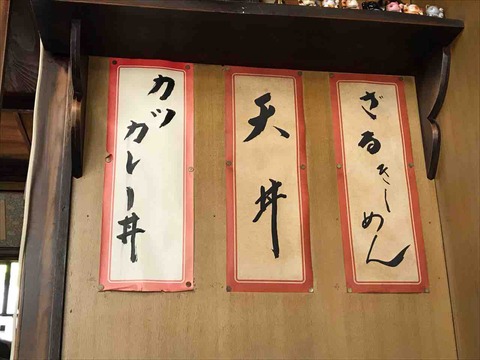 ざるきしめん
天丼
カツカレー丼